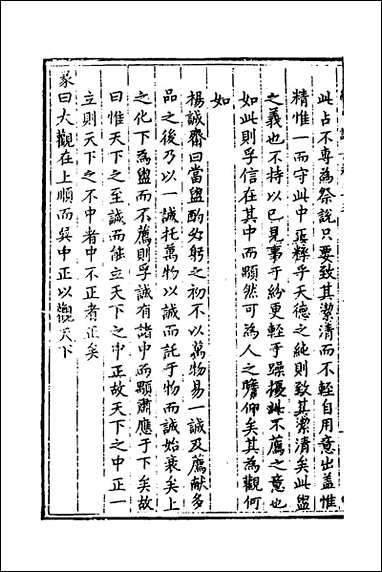 此占不專為祭說只要致其潔清而不輕自用意出蓋惟
精惟一而守此中正粹乎天德之純則致其潔清矣此盥
之義也不持以已見事于紛更輕于躁擾此不薦之意也
如此則孚信在其中而顒然可為人之瞻仰矣其為觀何
如
楊誠齋曰當盥酌必躬之初不以萬物易一誠及薦献多
品之後乃以一誠托萬物以誠而託于物而誠始衰矣上
之化下為盥而不薦則孚誠有諸中而顒肅應于下矣故
曰惟天下之至誠而能立天下之中正故天下之中正一
立則天下之不中者中不正者正矣
彖曰大觀在上順而巽中正以觀天下